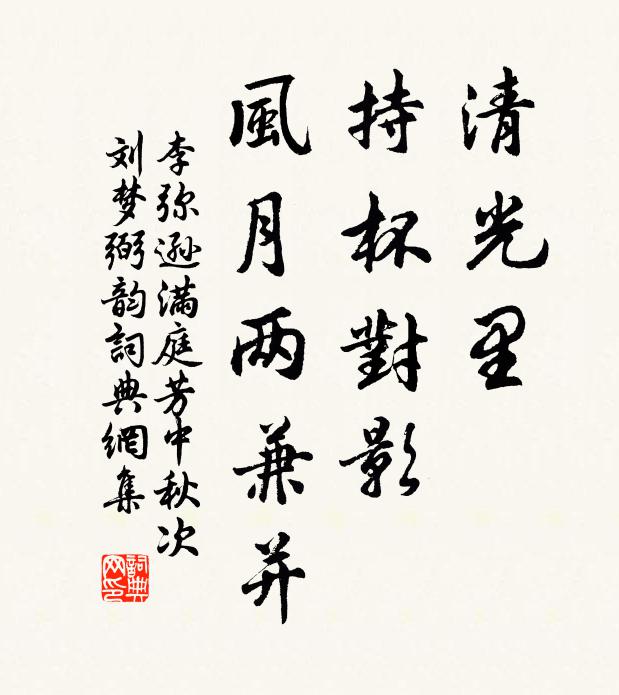 清光里
持杯對影
風月两兼并
李弥逊满庭芳中秋次
刘梦弼韵詞典網集
詞典网印